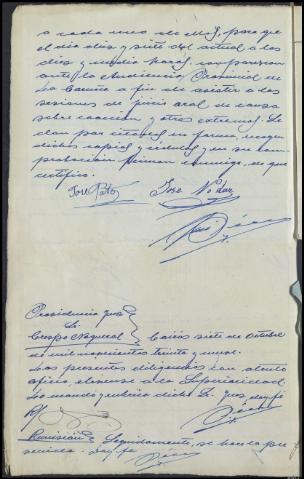 a cada uno de M.J., para que
el día diez y siete del actual a las
diez y media horas, comparezcan
ante la Audiencia Provincial de
La Coruña a fin de asistir a las
sesiones de juicio oral de causa
sobre coacción y otros extremos. Se
dan por citados en forma, recogen
dichas copias y cédulas y en su com-
probación firman conmigo, de que
certifico.
José Pato José Nodar
Providencia Juez
Sr.
Crespo Noguerol Caión siete de Octubre
de mil novecientos treinta y nueve.
Las presentes diligencias con atento
oficio, elévense a la Superioridad.
Lo mandó y rubrica dicho Sr. Juez, doy fé
Remisión Seguidamente, se hace la pre
venida. Doy fé